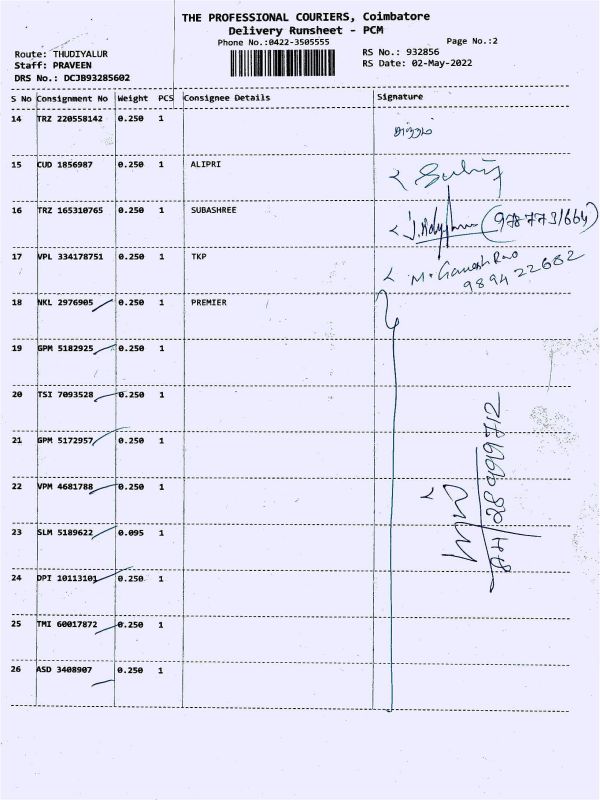 THE PROFESSIONAL COURIERS, Coimbatore
Delivery Runsheet - PCM
Phone No.:0422-3505555
Page No.:2
Route: THUDIYALUR
RS No.: 932856
Staff: PRAVEEN
RS Date: 02-May-2022
DRS No.: DCJB93285602
S No Consignment No Weight PCS Consignee Details Signature
14 TRZ 220558142 0.250 1
15 CUD 1856987 0.250 1 ALIPRI
16 TRZ 165310765 0.250 1 SUBASHREE
(9787731664)
17 VPL 334178751 0.250 1 TKP
M. Ganesh Rao
9894422682
18 NKL 2976905 0.250 1 PREMIER
19 GPM 5182925 0.250 1
20 TSI 7093528 0.250 1
21 GPM 5172957 0.250 1
22 VPM 4681788 0.250 1
23 SLM 5189622 0.095 1
24 DPI 10113101 0.250 1
25 TMI 60017872 0.250 1
26 ASD 3408907 0.250 1